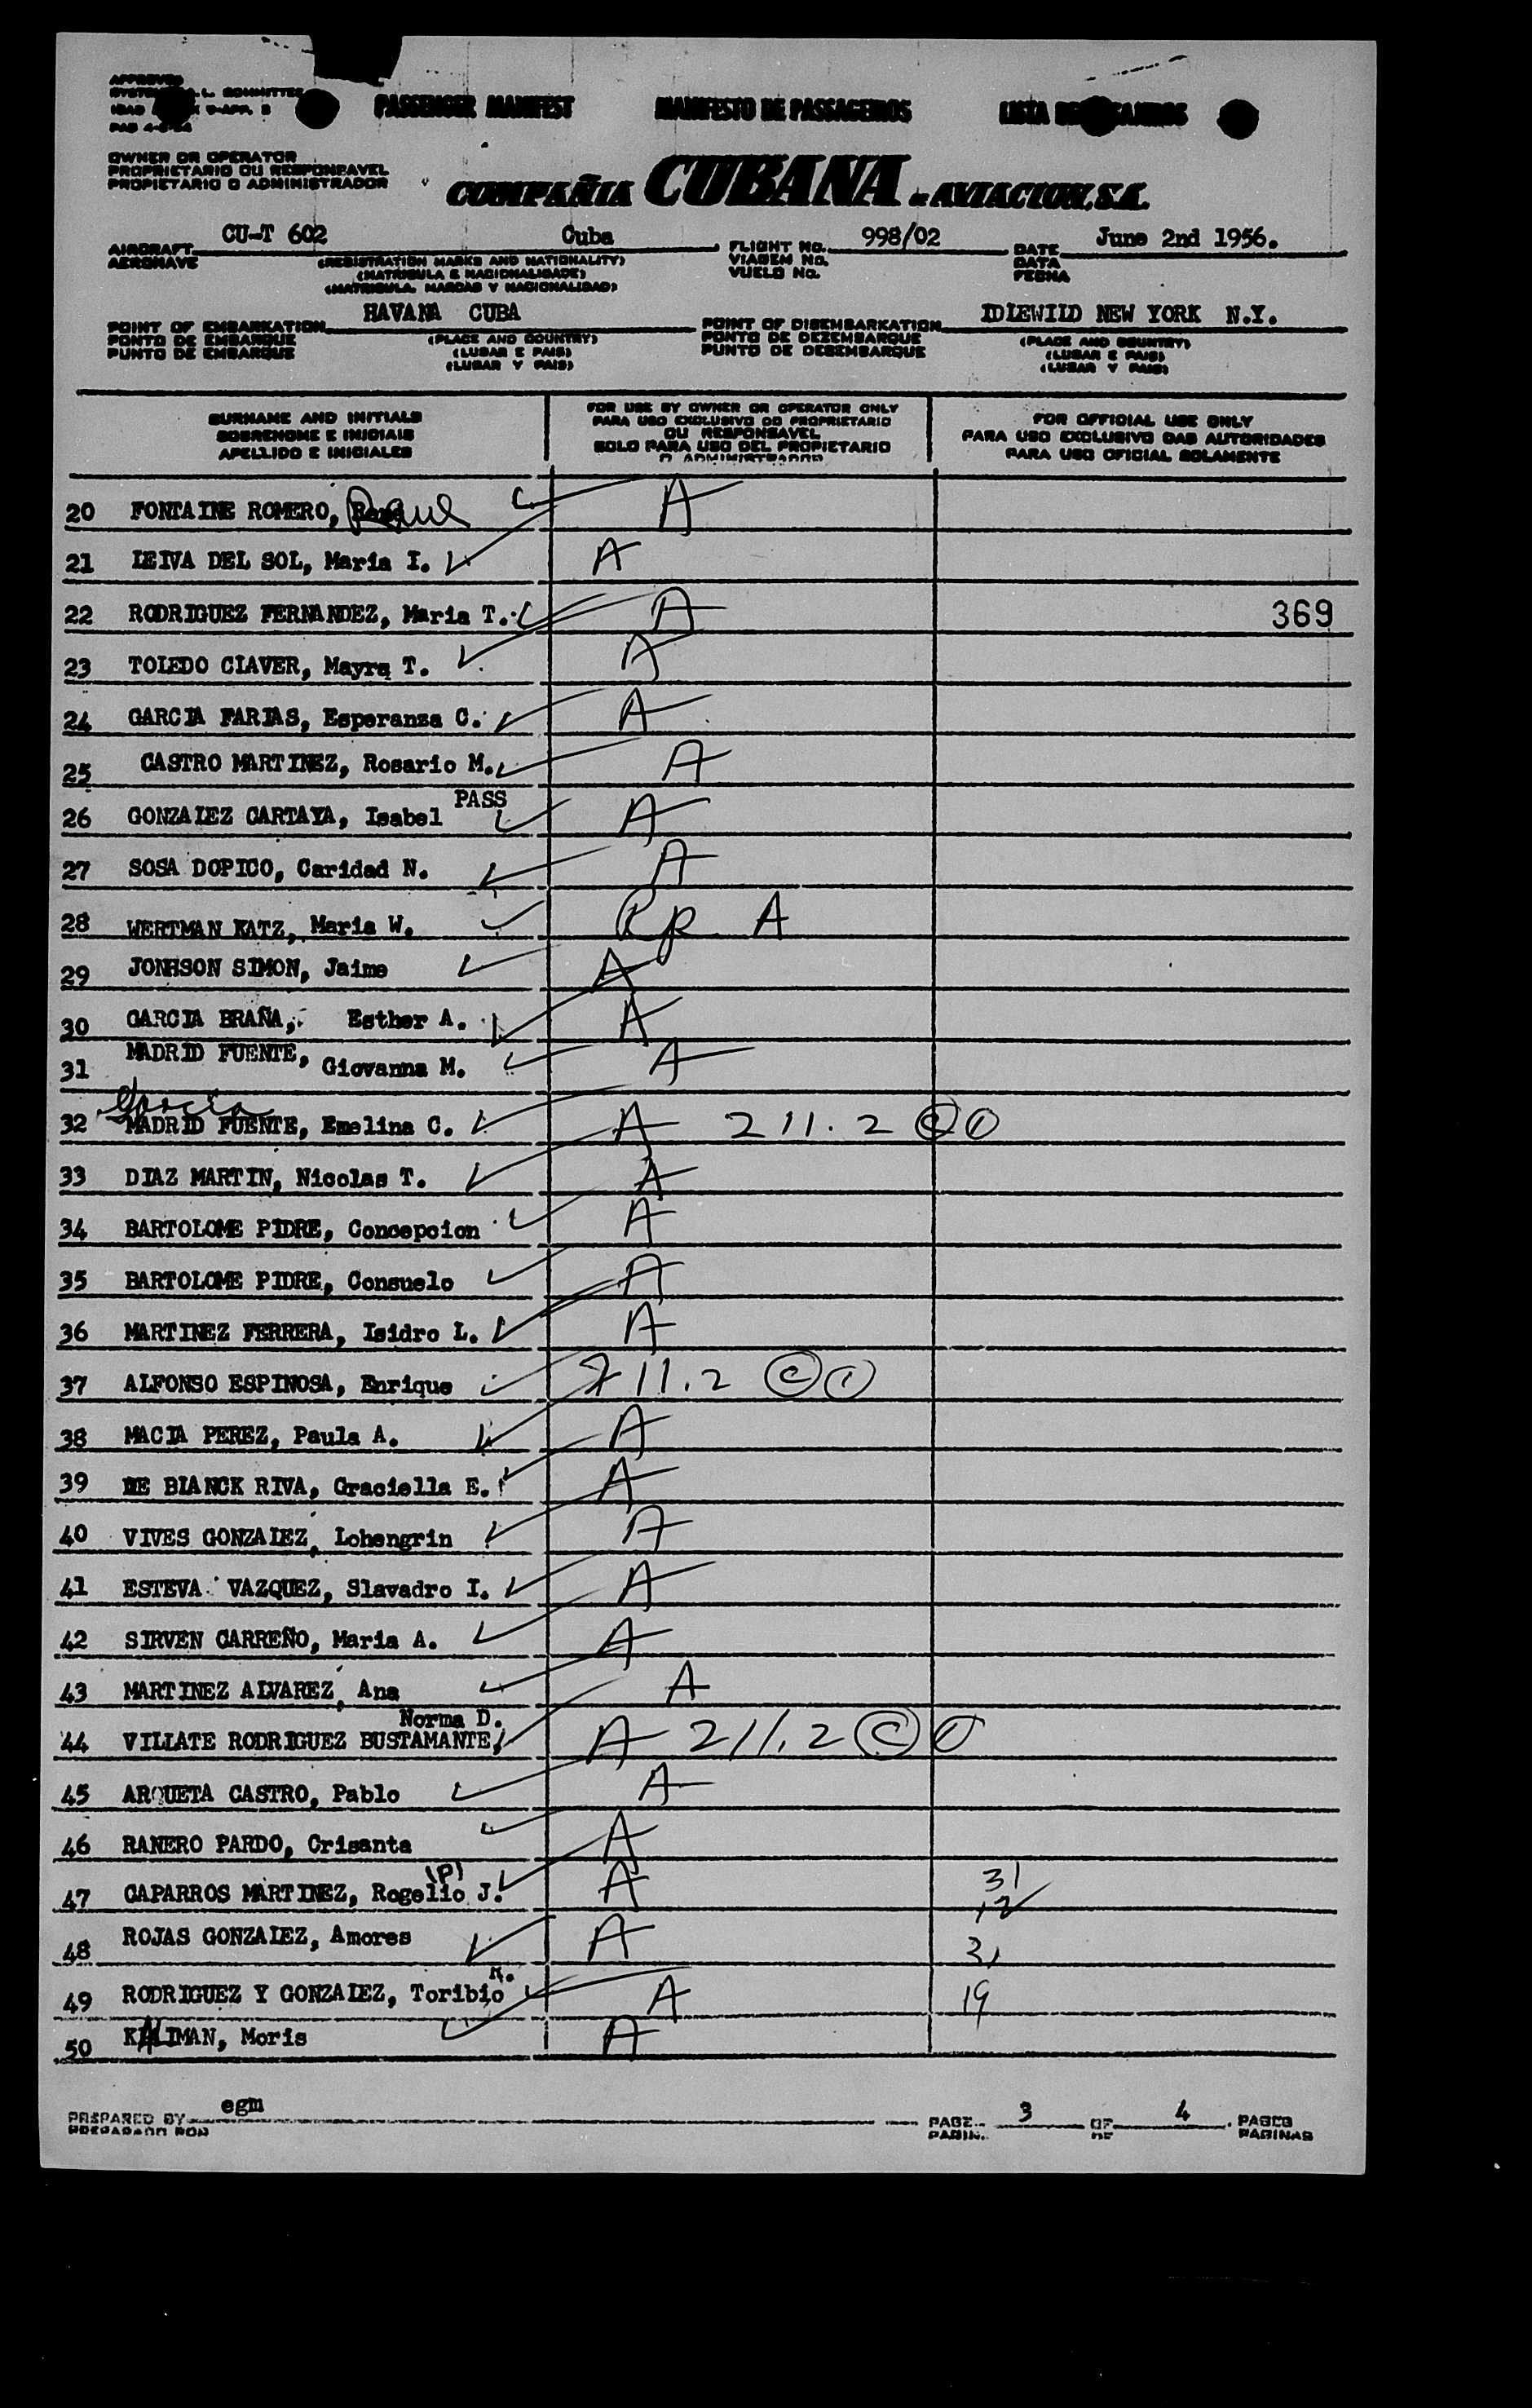 APPROVED
PASSENGER MANIFEST MANIFESTO DE PASSAGEIROS LISTA DE
OWNER OR OPERATOR
PROPRIETARIO OU RESPONSAVEL
PROPIETARIO O ADMINISTRADOR
COMPAÑIA CUBANA DE AVIACION, S.A.
AIRCRAFT CU-T 602 Cuba FLIGHT No. 998/02 DATE June 2nd 1956.
AERONAVE (REGISTRATION MARKS AND NATIONALITY) VIAGEM No. DATA
(MATRICULA E NACIONALIDADE) VUELO No. FECHA
(MATRICULA, MARCAS Y NACIONALIDAD)
POINT OF EMBARKATION HAVANA CUBA POINT OF DISEMBARKATION IDLEWILD NEW YORK N.Y.
PONTO DE EMBARQUE (PLACE AND COUNTRY) PONTO DE DEZEMBARQUE (PLACE AND COUNTRY)
PUNTO DE EMBARQUE (LUGAR E PAIS) PUNTO DE DESEMBARQUE (LUGAR E PAIS)
(LUGAR Y PAIS) (LUGAR Y PAIS)
SURNAME AND INITIALS FOR USE BY OWNER OR OPERATOR ONLY FOR OFFICIAL USE ONLY
SOBRENOME E INICIAIS PARA USO EXCLUSIVO DO PROPRIETARIO PARA USO EXCLUSIVO DAS AUTORIDADES
OU RESPONSAVEL
APELLIDO E INICIALES SOLO PARA USO DEL PROPIETARIO PARA USO OFICIAL SOLAMENTE
O ADMINISTRADOR
20 FONTAINE ROMERO, Raul A
21 LEIVA DEL SOL, Maria I. A
22 RODRIGUEZ FERNANDEZ, Maria T. A 369
23 TOLEDO CLAVER, Mayra T. A
24 GARCIA FARIAS, Esperanza C. A
25 CASTRO MARTINEZ, Rosario M. A
PASS
26 GONZALEZ CARTAYA, Isabel A
27 SOSA DOPICO, Caridad N. A
28 WERTMAN KATZ, Maria W. Rp A
29 JONHSON SIMON, Jaime A
30 GARCIA BRAÑA, Esther A. A
31 MADRID FUENTE, Giovanna M. A
Garcia
32 MADRID FUENTE, Emelina C. A 211.2 C 1
33 DIAZ MARTIN, Nicolas T. A
34 BARTOLOME PIDRE, Concepcion A
35 BARTOLOME PIDRE, Consuelo A
36 MARTINEZ FERRERA, Isidro L. A
37 ALFONSO ESPINOSA, Enrique 211.2 C 1
38 MACIA PEREZ, Paula A. A
39 DE BLANCK RIVA, Graciella E. A
40 VIVES GONZALEZ, Lohengrin A
41 ESTEVA VAZQUEZ, Slavadro I. A
42 SIRVEN CARREÑO, Maria A. A
43 MARTINEZ ALVAREZ, Ana A
Norma D.
44 VILLATE RODRIGUEZ BUSTAMANTE, A 211.2 C 1
45 ARQUETA CASTRO, Pablo A
46 RANERO PARDO, Crisanta A
(P)
47 CAPARROS MARTINEZ, Rogelio J. A 31
12
48 ROJAS GONZALEZ, Amores A 31
R.
49 RODRIGUEZ Y GONZALEZ, Toribio A 19
50 KALIMAN, Moris A
PREPARED BY egm PAGE 3 OF 4 PAGES
PREPARADO POR PAGIN. DE PAGINAS